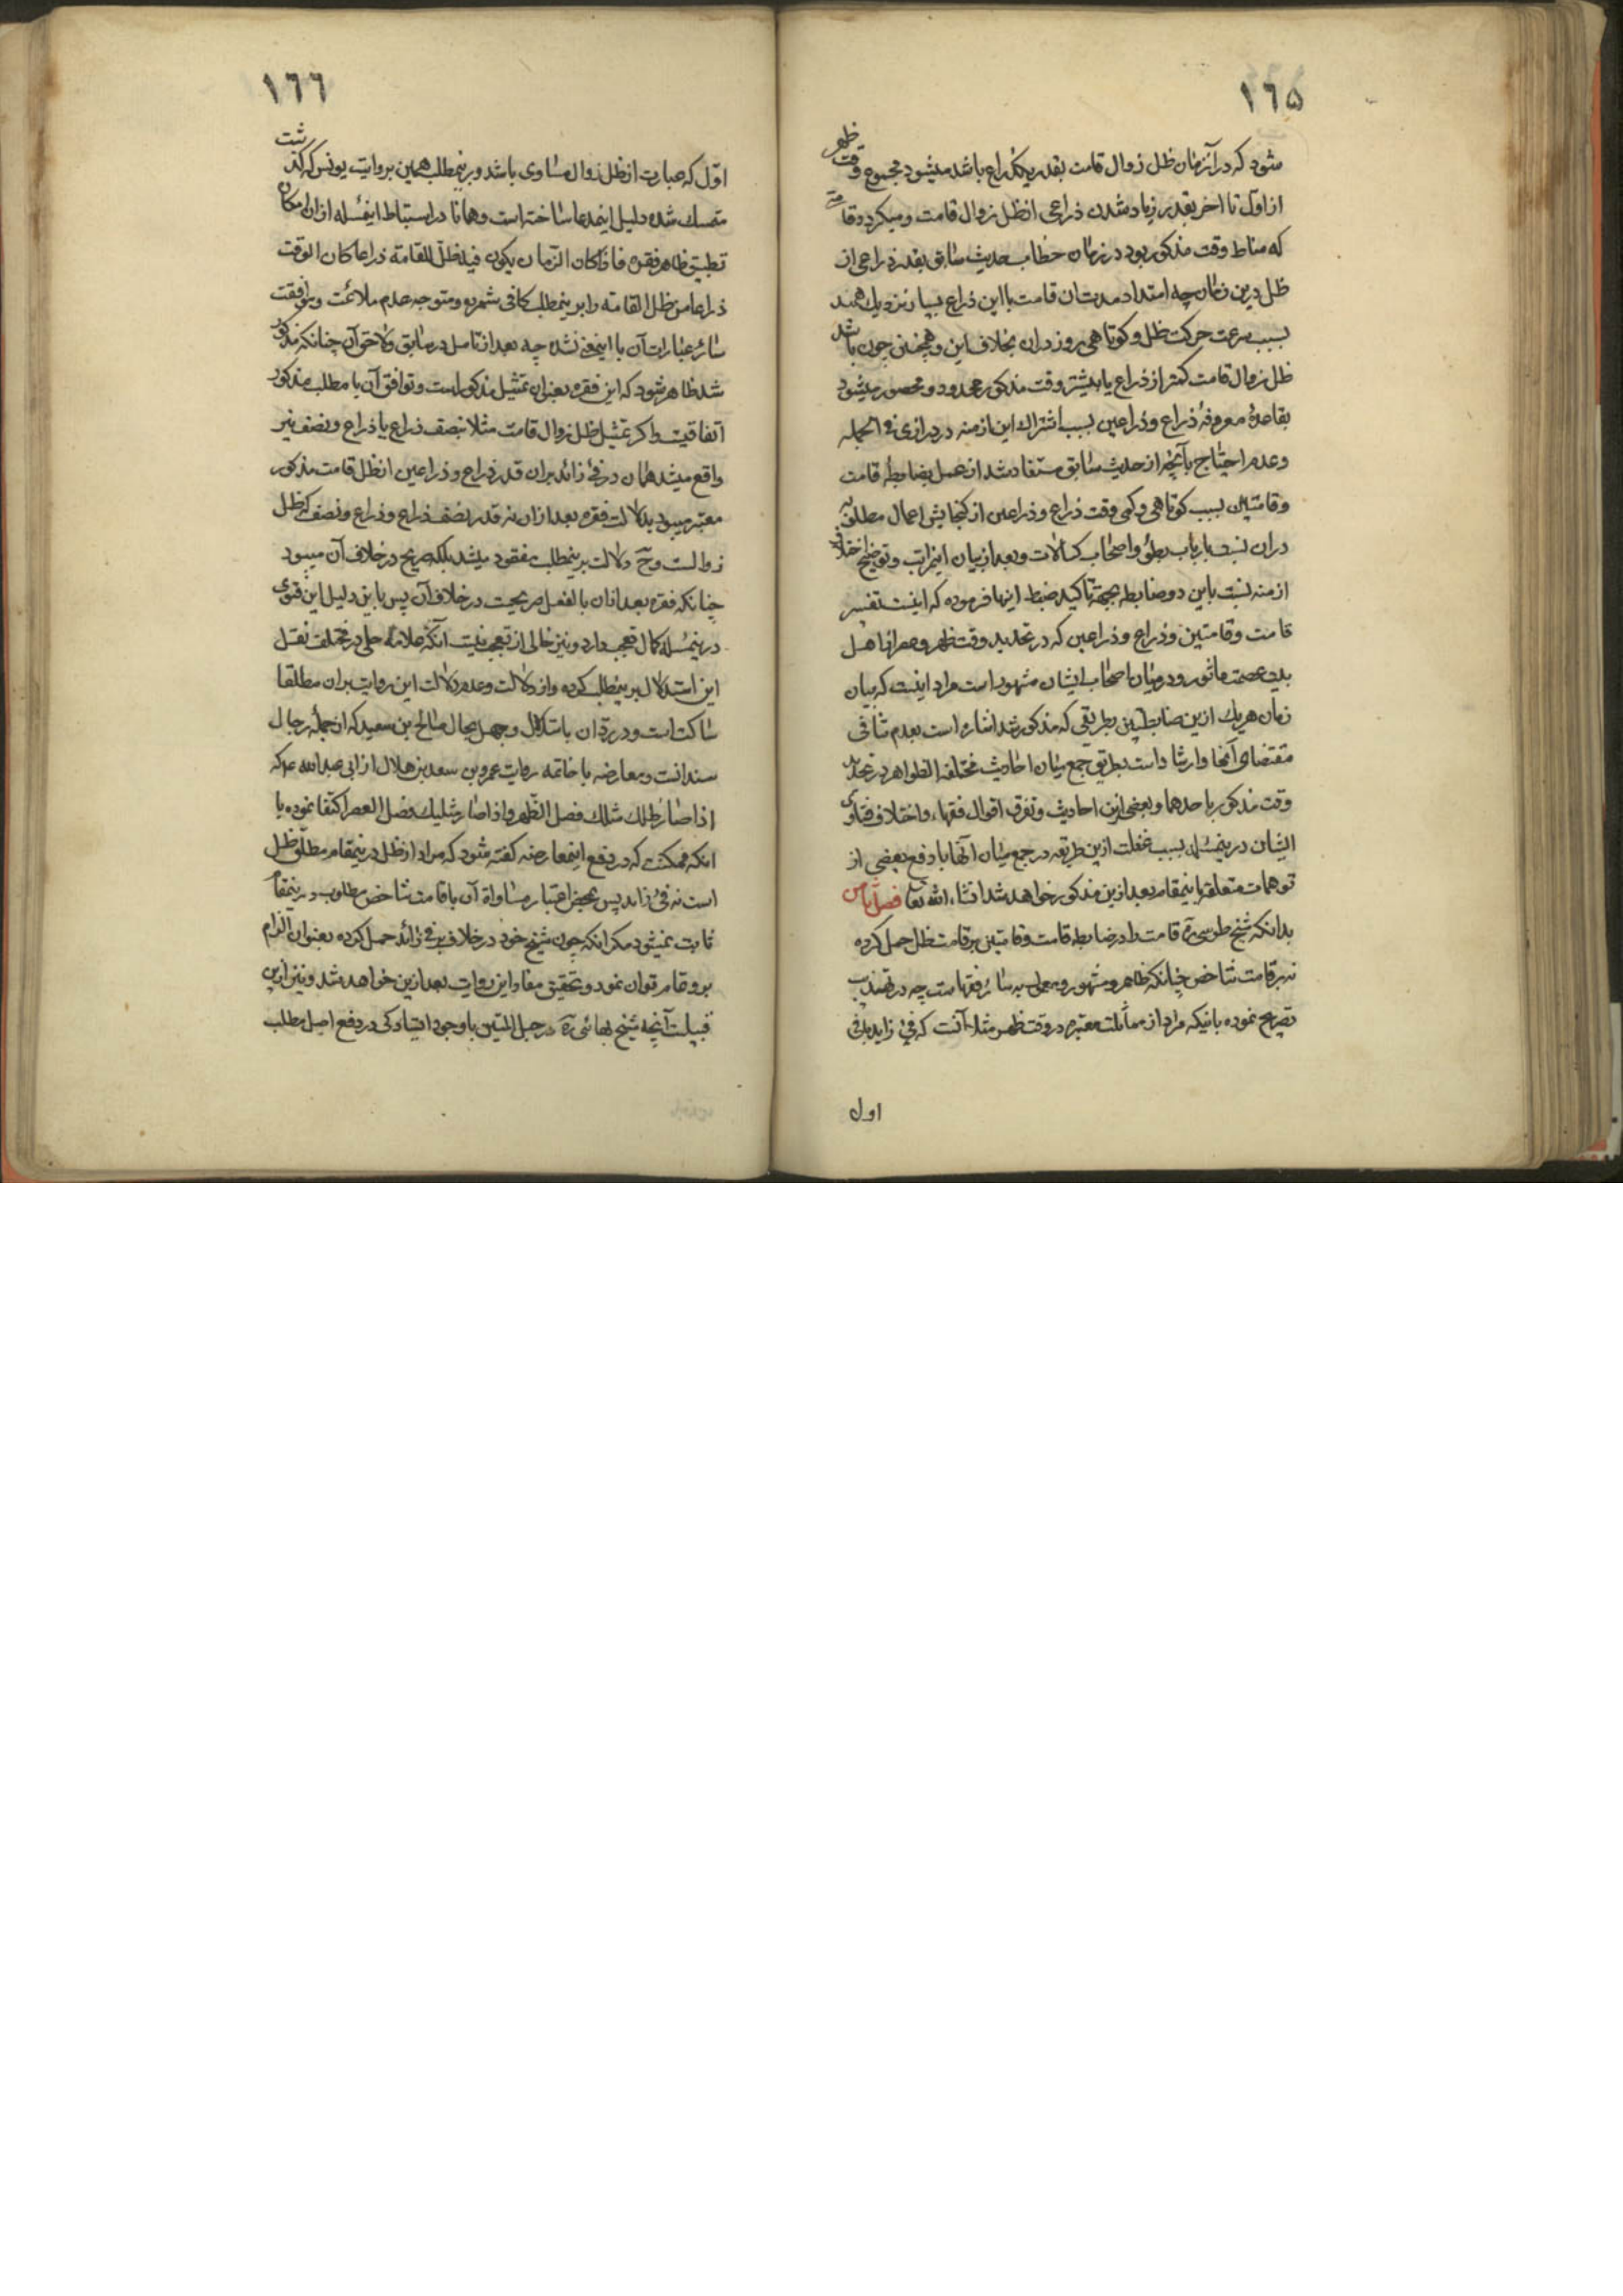 ١٦٥
شود که در آنزمان ظل زوال قامت بقدر یکذراع باشد میشود مجموع وقت ظهر
از اول تا اخر بقدر زیاد شدن ذراعی از ظل زوال قامت و میکردد قامة
که مناط وقت مذکور بود در زمان خطاب حدیث سابق بقدر ذراعی از
ظل درین زمان چه امتداد مدتان قامت با این ذراع بسیار نزدیک همند
بسبب سرعت حرکت ظل و کوتاهی روز دران بخلاف این و همچنین چون باشد
ظل زوال قامت کمتر از ذراع یا بیشتر وقت مذکور محدود و محصور میشود
بقاعدهٔ معروفهٔ ذراع و ذراعین بسبب اشتراک این ازمنه در درازی فی الجمله
و عدم احتیاج بآنچه از حدیث سابق مستفاد شد از عمل بضابطه قامت
و قامتین بسبب کوتاهی و کمی وقت ذراع و ذراعین از کنجایش اعمال مطلوبه
دران نسبت بارباب بطؤ و اصحاب کسالات و بعد از بیان اینمراتب و توضیح اختلاف
ازمنه نسبت باین دو ضابطه بجهة تاکید ضبط اینها فرموده که اینست تفسیر
قامت و قامتین و ذراع و ذراعین که در تحدید وقت ظهر و عصر از اهل
بیت عصمت ماثور و در میان اصحاب ایشان مشهور است مراد اینست که بیان
زمان هریک ازین ضابطتین بطریقی که مذکور شد اشاره است بعدم تنافی
مقتضای آنها و ارشاد است بطریق جمع میان احادیث مختلفة الظواهر در تحدید
وقت مذکور باحدهما و بعضی ازین احادیث و تفرق اقوال فقهاء و اختلاف فتاوی
ایشان درینمسئله بسبب غفلت ازین طریقه در جمع میان آنها با دفع بعضی از
توهمات متعلقه باینمقام بعد ازین مذکور خواهد شد انشاء الله تعا فصل ثامن
بدانکه شیخ طوسی ره قامت را در ضابطه قامت و قامتین بر قامت ظل حمل کرده
نه بر قامت شاخص چنانکه ظاهر و مشهور و معمول به سائر فقهاست چه در تهذیب
تصریح نموده باینکه مراد از مماثلت معتبره در وقت ظهر مثلا آنست که فئ زاید بافئ
اول
١٦٦
اول که عبارت از ظل زوال مساوی باشد و برینمطلب همین بروایت یونس که کذشت
متمسک شده دلیل اینمدعا ساخته است و همانا در استنباط اینمسئله ازان امکان
تطبیق ظاهر فقره فاذا کان الزمان یکون فیه ظل القامة ذراعا کان الوقت
ذراعا من ظل القامة را برینمطلب کافی شمرده و متوجه عدم ملائمت و موافقت
سائر عبارات آن با اینمعنی نشده چه بعد از تامل در سابق و لاحق آن چنانکه مذکور
شد ظاهر شود که این فقره بعنوان تمثیل مذکور است و توافق آن با مطلب مذکور
اتفاقیست و اکر تمثیل ظل زوال قامت مثلا بنصف ذراع یا ذراع و نصف نیز
واقع میشد همان در فئ زائد بران قدر ذراع و ذراعین از ظل قامت مذکور
معتبر میبود بدلالت فقره بعد ازان نه قدر نصف ذراع و ذراع و نصف که ظل
زوالست و ح دلالت برینمطلب مفقود میشد بلکه صریح در خلاف آن میبود
چنانکه فقره بعد ازان بالفعل صریحست در خلاف آن پس باین دلیل این فتوی
درینمسئله کمال تعجب دارد و نیز خالی از تعجب نیست آنکه علامه حلی در مختلف نقل
این استدلال برینمطلب کرده و از دلالت و عدم دلالت این روایت بران مطلقا
ساکت است و در رد آن باشکال و جهل بحال صالح بن سعید که از جمله رجال
سند انست و معارضه با خاتمه روایت عمرو بن سعد بن هلال از ابی عبد الله ع که
اذا صار ظلک مثلک فصل الظهر و اذا صار مثلیک فصل العصر اکتفا نموده با
آنکه ممکنست که در دفع اینمعارضه کفته شود که مراد از ظل درینمقام مطلق ظل
است نه فئ زاید پس بمحض اعتبار مساواة آن با قامت شاخص مطلوب درینمقام
ثابت نمیشود مکر آنکه چون شیخ خود در خلاف بر فئ زائد حمل کرده بعنوان الزام
برو تمام توان نمود و تحقیق مفاد این روایت بعد ازین خواهد شد و نیز ازین
قبیلست آنچه شیخ بهائی ره در حبل المتین با وجود ایستادکی در دفع اصل مطلب